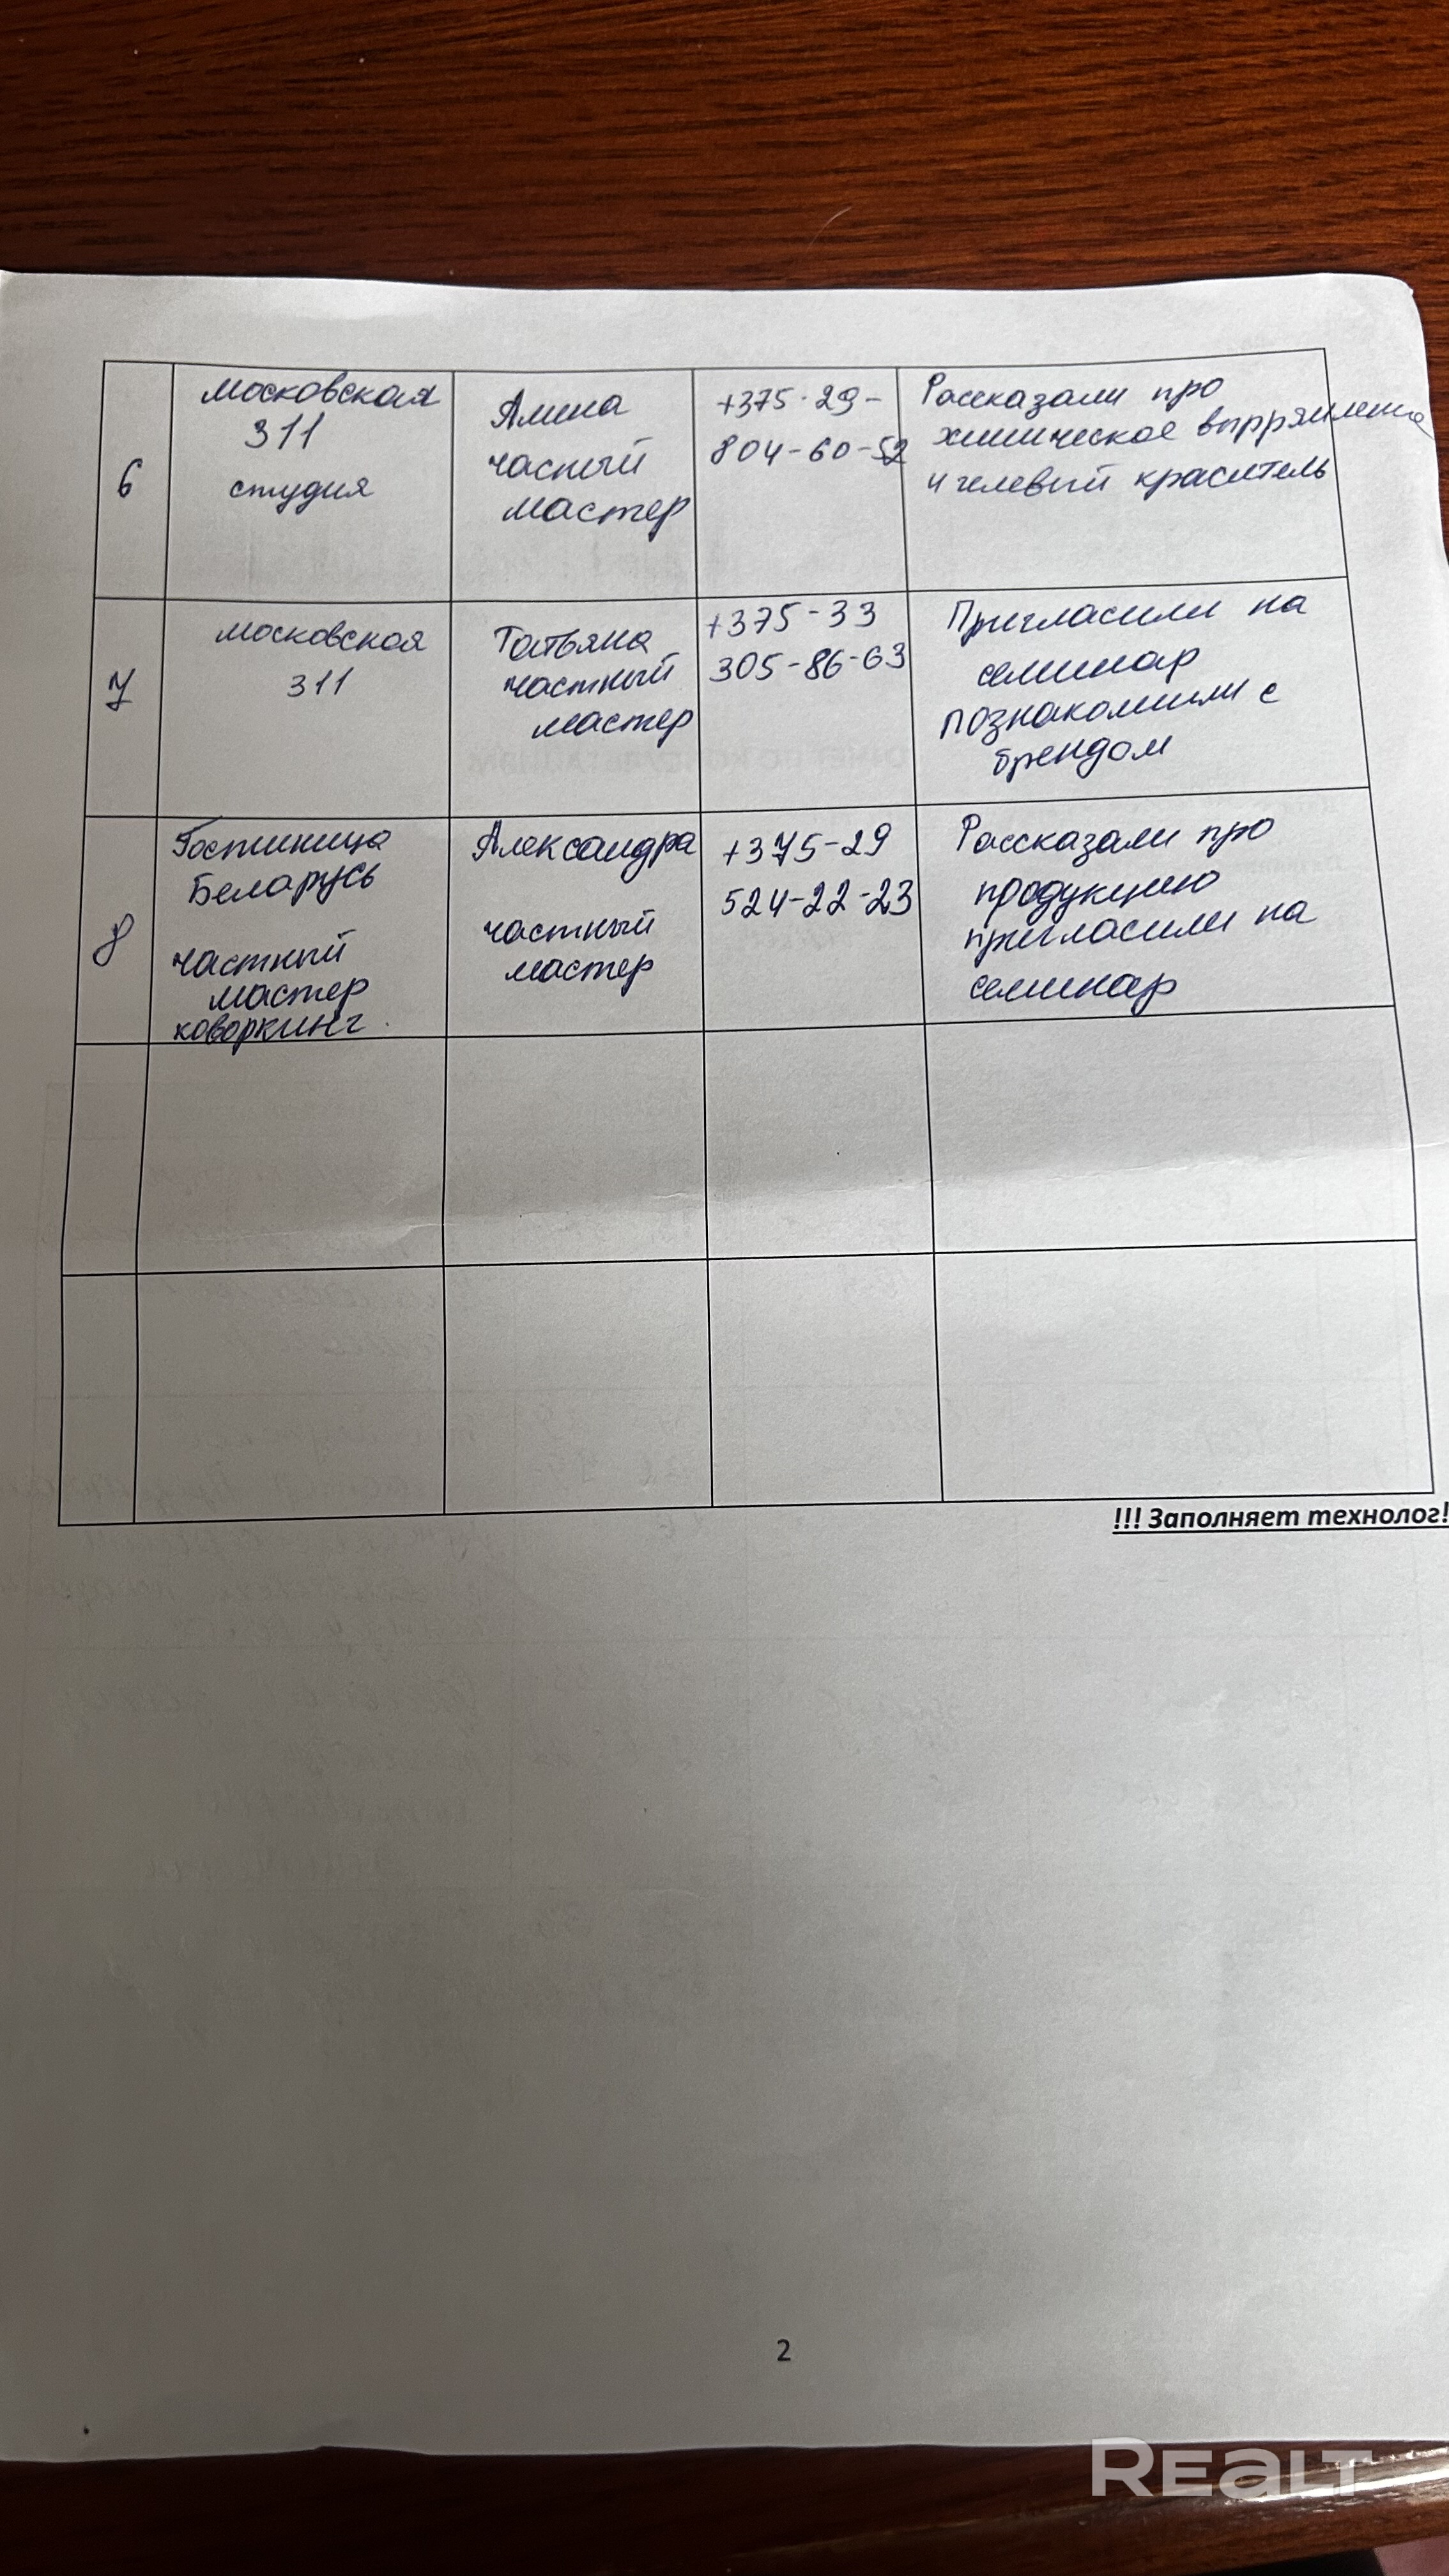 6
Московская
311
студия
Алина
часный
мастер
+375-29-
804-60-52
Рассказали про
химическое выпрямление
и гелевый краситель
7
Московская
311
Татьяна
частный
мастер
+375-33
305-86-63
Пригласили на
семинар
познакомили с
брендом
8
Гостиница
Беларусь
частный
мастер
коворкинг
Александра
частный
мастер
+375-29
524-22-23
Рассказали про
продукцию
пригласили на
семинар
!!! Заполняет технолог!
2
REALT